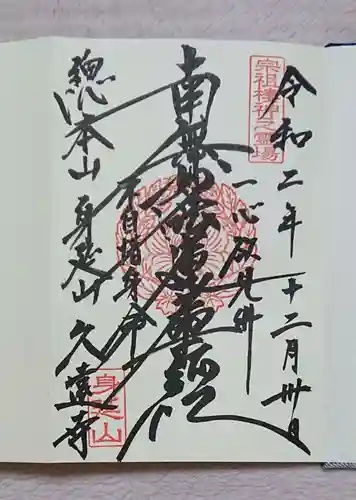 宗祖棲神之霊場
令和二年十二月卅日
一心欲見佛
南無妙法蓮華経
不自惜身命
總本山身延山久遠寺
身延山